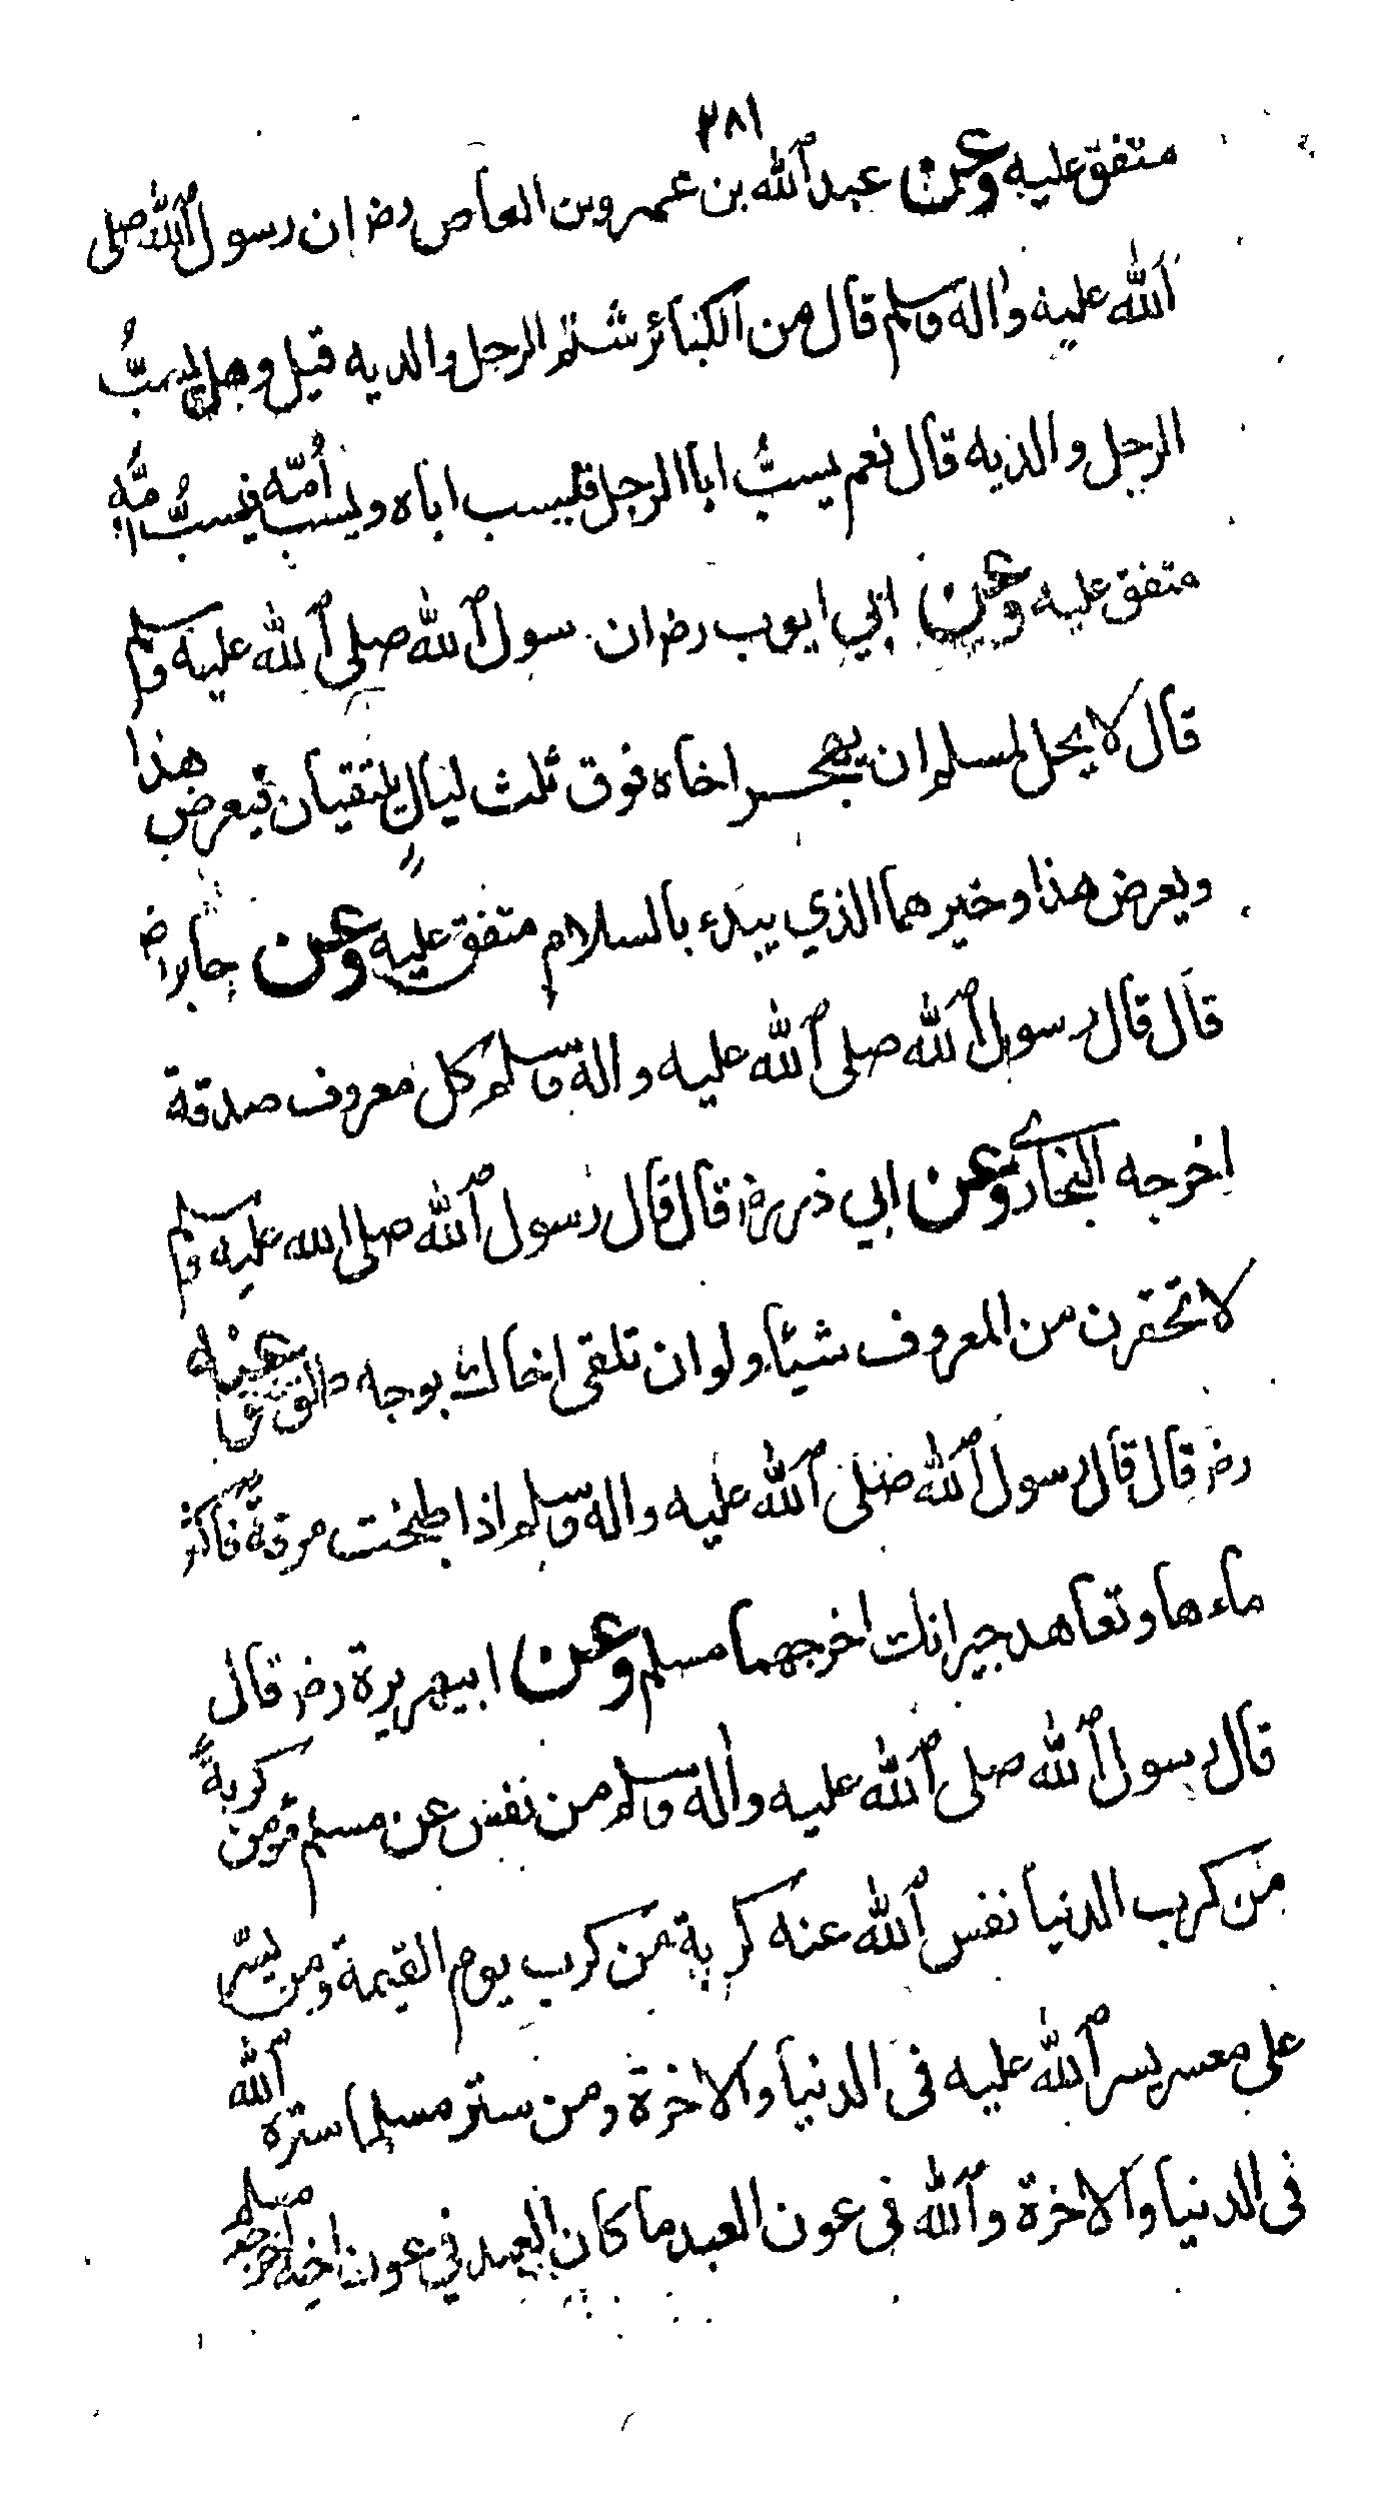 ٢٨١
متفق عليه وعن عبد الله بن عمرو بن العاص رضر ان رسول الله صلى
الله عليه واله وسلم قال من الكبائر شتم الرجل والديه قيل وهل يسبُّ
الرجل والديه قال نعم يسبُّ ابا الرجل فيسب اباه ويسب اُمّه فيسبُّ امّه
متفق عليه وعن ابي ايوب رضر ان رسول الله صلى الله عليه وسلم
قال لا يحل لمسلم ان يهجر اخاه فوق ثلث ليالٍ يلتقيان فيعرض هذا
ويعرض هذا وخيرهما الذي يبدء بالسلام متفق عليه وعن جابر رضر
قال قال رسول الله صلى الله عليه واله وسلم كل معروف صدقة
اخرجه البخاري وعن ابي ذر رضر قال قال رسول الله صلى الله عليه وسلم
لا تحقرن من المعروف شيئا ولو ان تلقى اخاك بوجه طلق وعنه
رضر قال قال رسول الله صلى الله عليه واله وسلم اذا طبخت مرقة فاكثر
ماءها وتعاهد جيرانك اخرجهما مسلم وعن ابيهريرة رضر قال
قال رسول الله صلى الله عليه واله وسلم من نفس عن مسلم كربةً
من كرب الدنيا نفس الله عنه كربة من كرب يوم القيمة ومن يسّر
على معسر يسر الله عليه فى الدنيا والاخرة ومن ستر مسلما ستره الله
فى الدنيا والاخرة والله فى عون العبد ما كان العبد في عون اخيه اخرجه مسلم